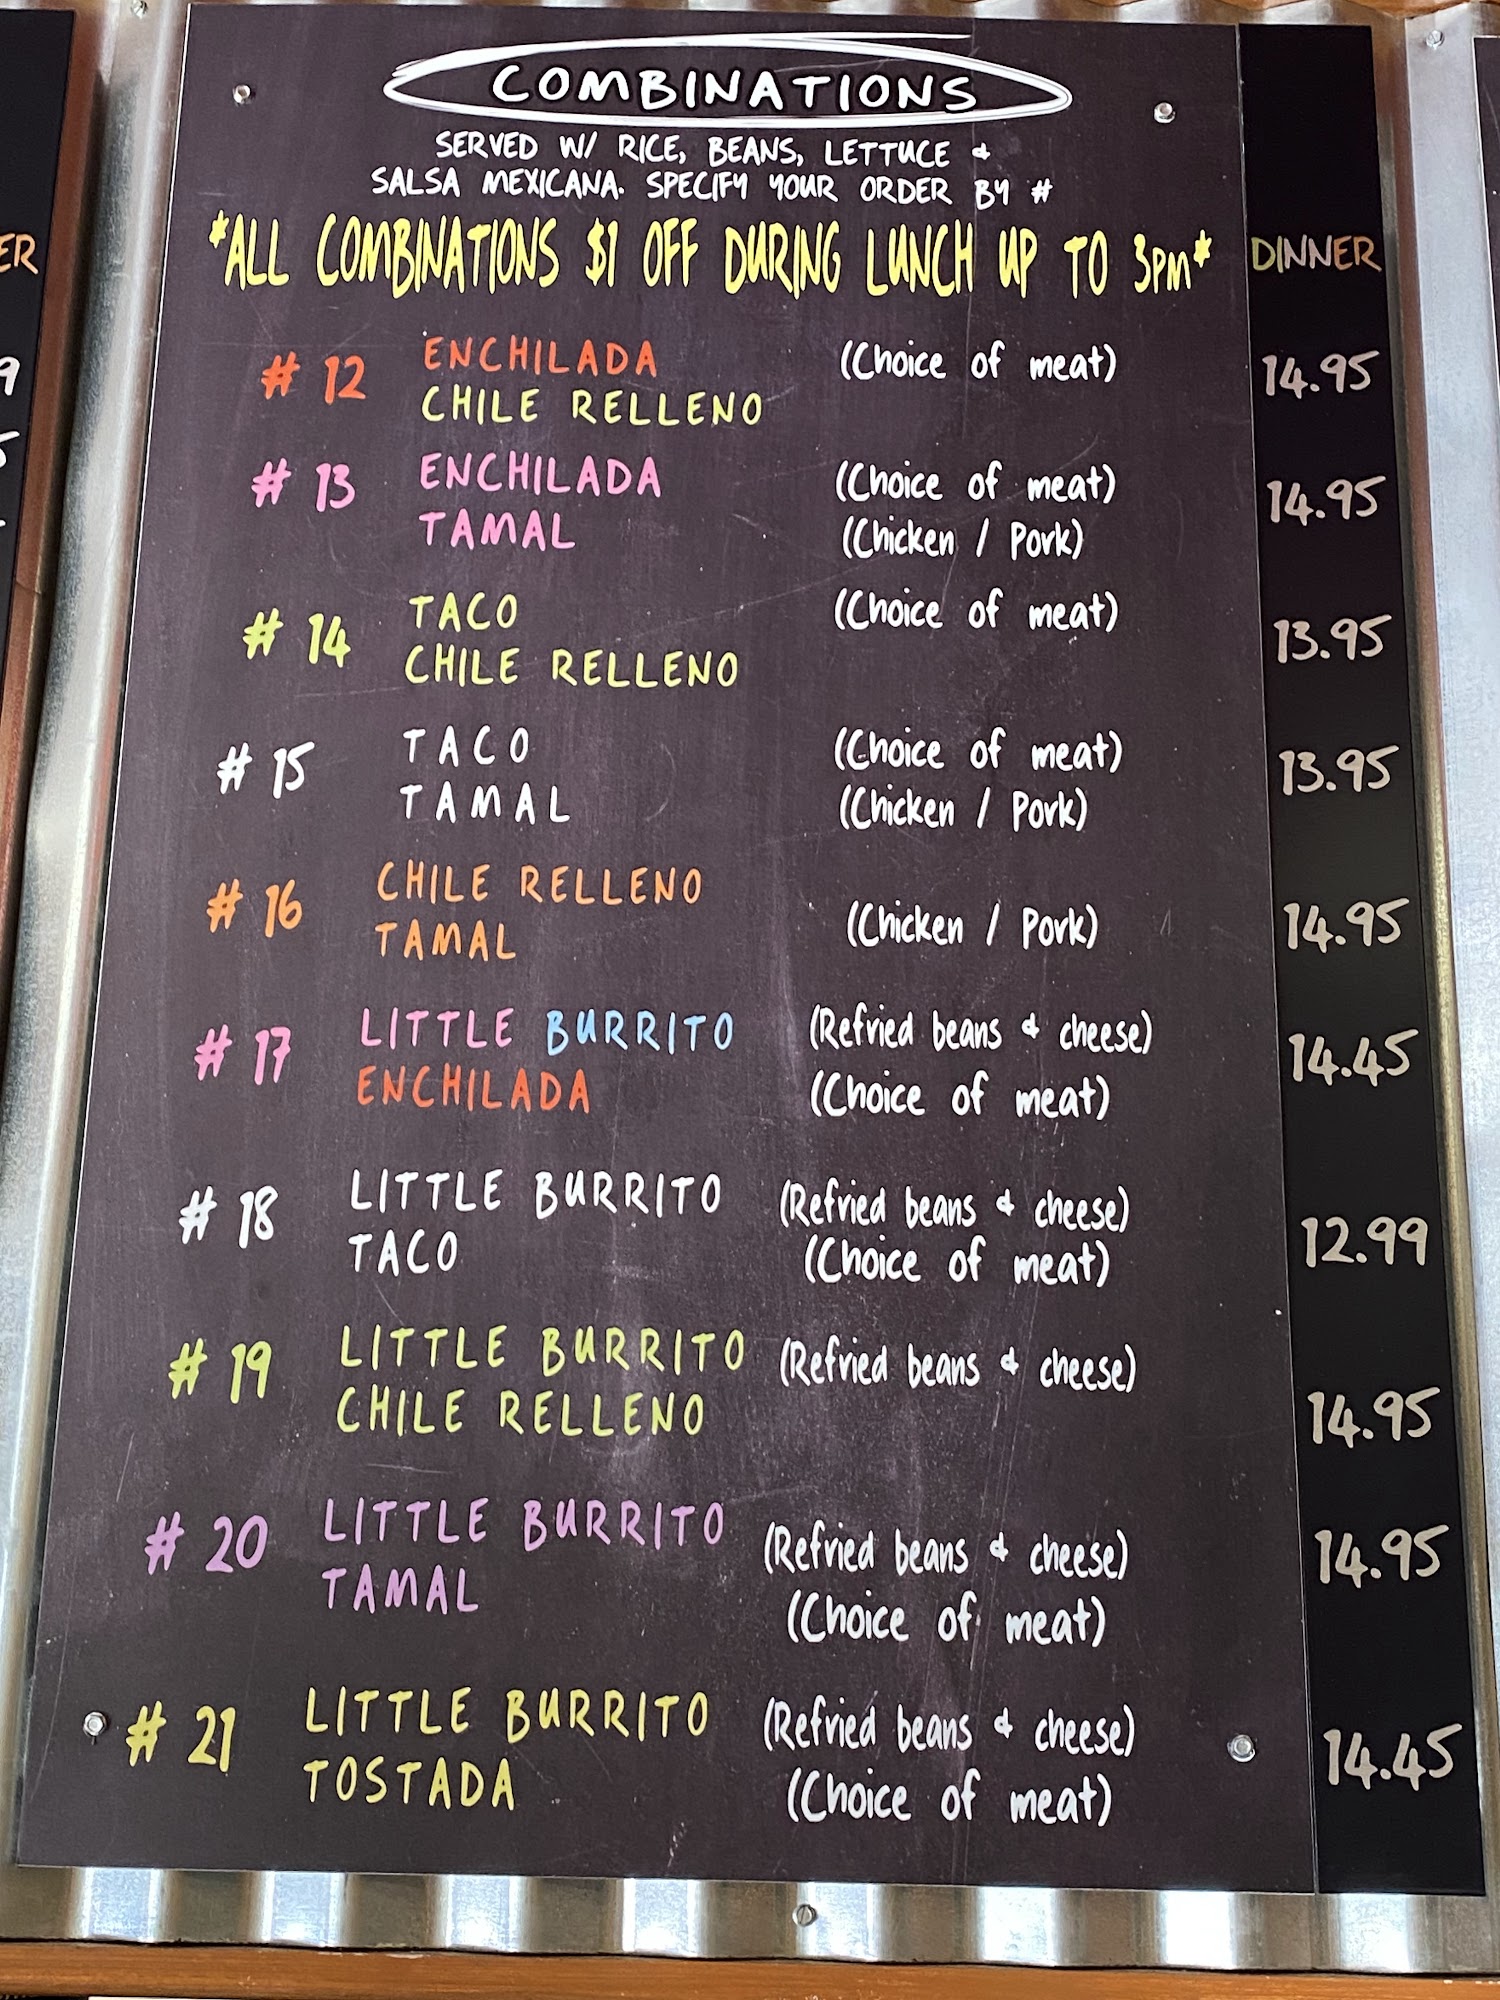 COMBINATIONS
SERVED W/ RICE, BEANS, LETTUCE &
SALSA MEXICANA. SPECIFY YOUR ORDER BY #
*ALL COMBINATIONS $1 OFF DURING LUNCH UP TO 3PM*
DINNER
# 12 ENCHILADA (Choice of meat) 14.95
CHILE RELLENO
# 13 ENCHILADA (Choice of meat) 14.95
TAMAL (Chicken / Pork)
# 14 TACO (Choice of meat) 13.95
CHILE RELLENO
# 15 TACO (Choice of meat) 13.95
TAMAL (Chicken / Pork)
# 16 CHILE RELLENO 14.95
TAMAL (Chicken / Pork)
# 17 LITTLE BURRITO (Refried beans & cheese) 14.45
ENCHILADA (Choice of meat)
# 18 LITTLE BURRITO (Refried beans & cheese) 12.99
TACO (Choice of meat)
# 19 LITTLE BURRITO (Refried beans & cheese)
CHILE RELLENO 14.95
# 20 LITTLE BURRITO (Refried beans & cheese) 14.95
TAMAL (Choice of meat)
# 21 LITTLE BURRITO (Refried beans & cheese) 14.45
TOSTADA (Choice of meat)